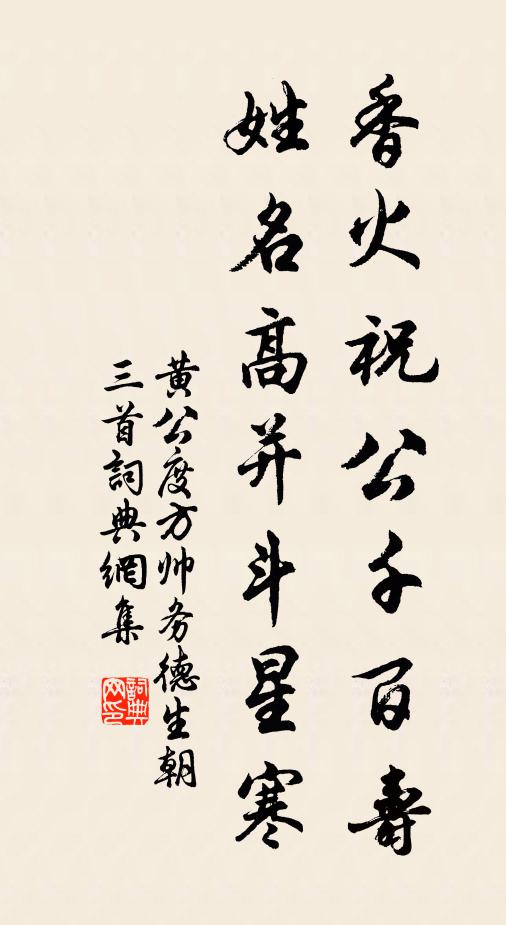 香火祝公千百壽
姓名高并斗星寒
黄公度方帅务德生朝
三首詞典網集
詞典
网印